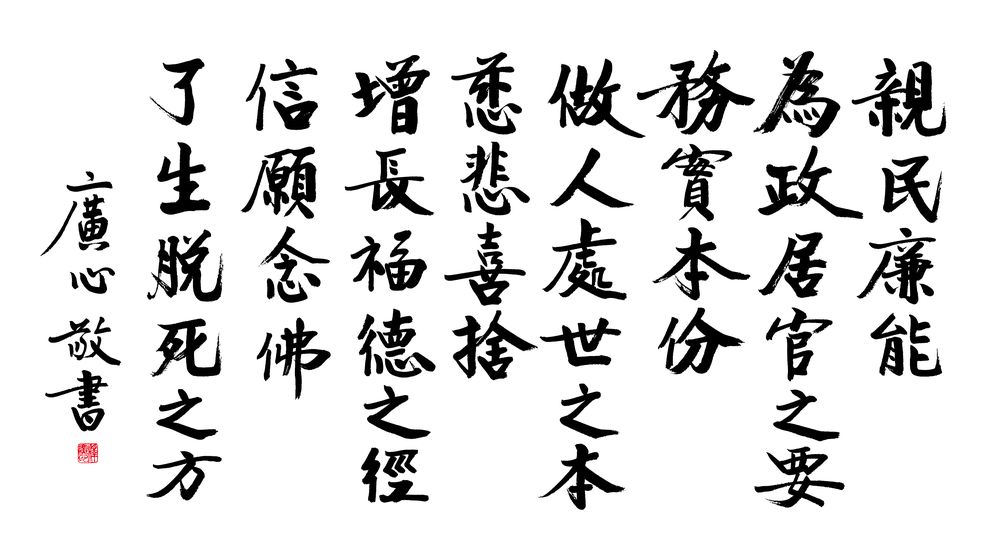 親民廉能
為政居官之要
務實本份
做人處世之本
慈悲喜捨
增長福德之經
信願念佛
了生脫死之方
廣心敬書